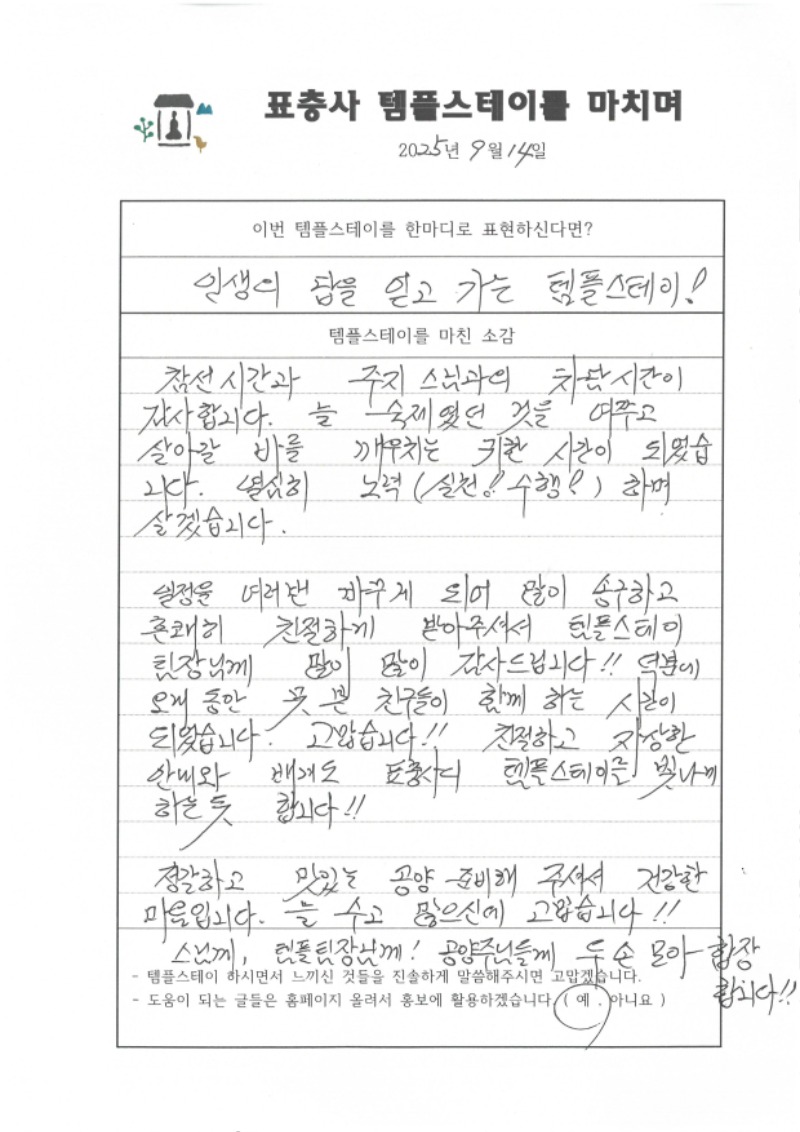 표충사 템플스테이를 마치며
2025년 9월 14일
이번 템플스테이를 한마디로 표현하신다면?
인생의 답을 얻고 가는 템플스테이!
템플스테이를 마친 소감
참선시간과 주지스님과의 차담시간이
감사합니다. 늘 숙제였던 것을 여쭈고
살아갈 바를 깨우치는 귀한 시간이 되었습
니다. 열심히 노력(실천! 수행!) 하며
살겠습니다.
일정을 여러번 바꾸게 되어 많이 송구하고
흔쾌히 친절하게 받아주셔서 템플스테이
팀장님께 많이 많이 감사드립니다!! 덕분에
오래 동안 못 본 친구들이 함께 하는 시간이
되었습니다. 고맙습니다!! 친절하고 자상한
안내와 배려도 표충사의 템플스테이를 빛나게
하는 듯 합니다!!
정갈하고 맛있는 공양 준비해 주셔서 건강한
마음입니다. 늘 수고 많으신데 고맙습니다!!
스님께, 템플팀장님께! 공양주님들께 두 손 모아 합장
합니다!!
- 템플스테이 하시면서 느끼신 것들을 진솔하게 말씀해주시면 고맙겠습니다.
- 도움이 되는 글들은 홈페이지 올려서 홍보에 활용하겠습니다. ( 예 . 아니요 )